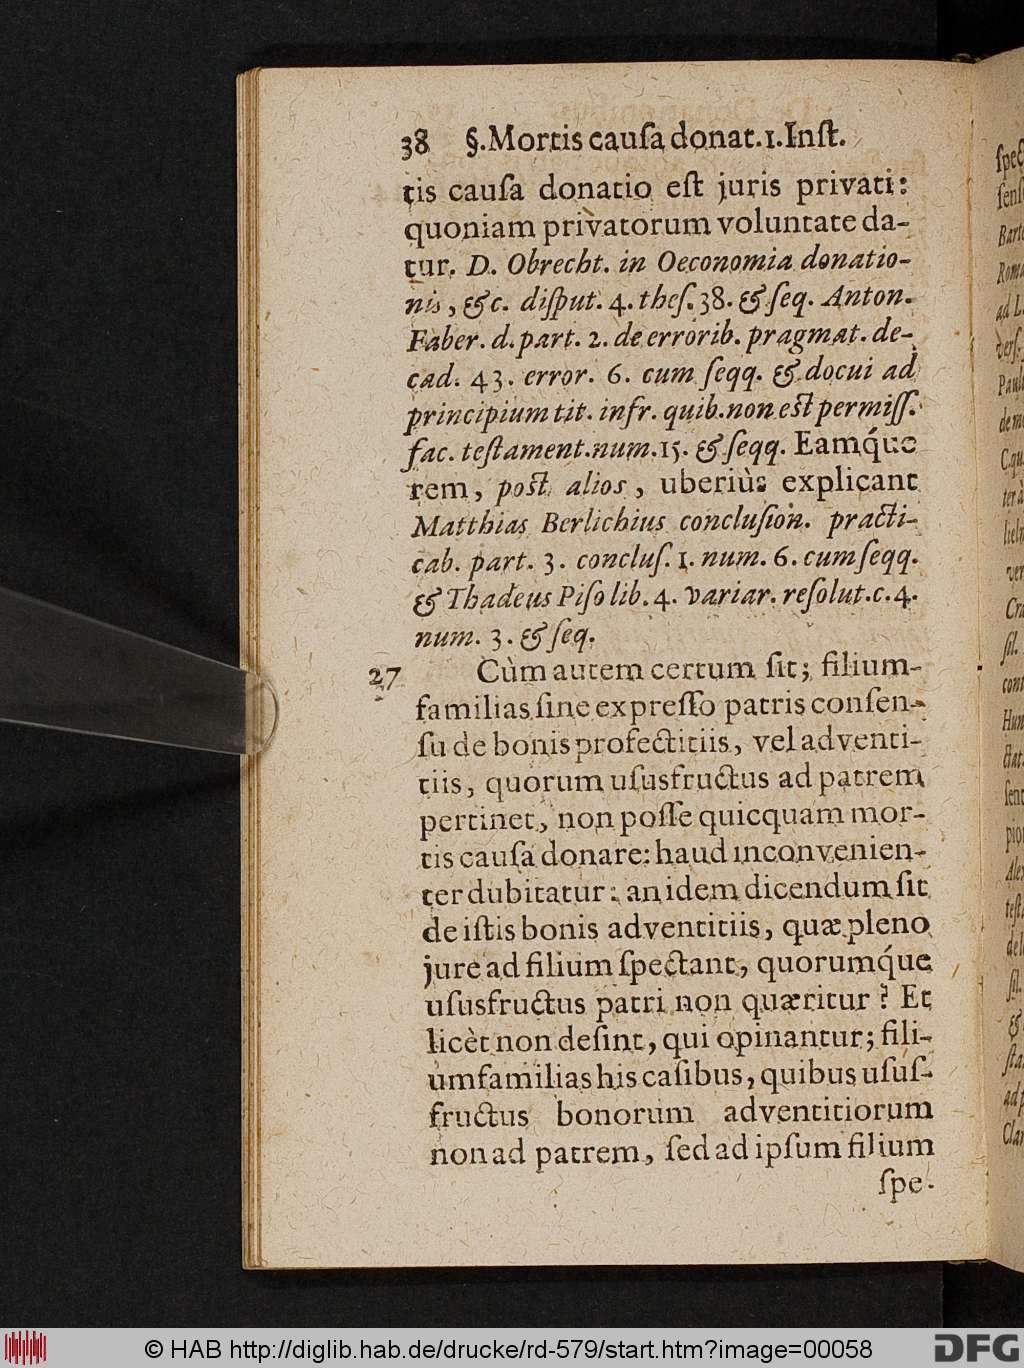 38 §. Mortis cauſa donat. 1. Inſt.
tis cauſa donatio eſt juris privati:
quoniam privatorum voluntate da-
tur. D. Obrecht. in Oeconomia donatio-
nis, &c. diſput. 4. theſ. 38. & ſeq. Anton.
Faber. d. part. 2. de errorib. pragmat. de-
cad. 43. error. 6. cum ſeqq. & docui ad
principium tit. infr. quib. non eſt permiſſ.
fac. teſtament. num. 15. & ſeqq. Eamq́ue
rem, poſt alios, uberiùs explicant
Matthias Berlichius concluſion. practi-
cab. part. 3. concluſ. 1. num. 6. cum ſeqq.
& Thadeus Piſo lib. 4. variar. reſolut. c. 4.
num. 3. & ſeq.
27 Cùm autem certum ſit; filium-
familias ſine expreſſo patris conſen-
ſu de bonis profectitiis, vel adventi-
tiis, quorum uſusfructus ad patrem
pertinet, non poſſe quicquam mor-
tis cauſa donare: haud inconvenien-
ter dubitatur: an idem dicendum ſit
de iſtis bonis adventitiis, quæ pleno
jure ad filium ſpectant, quorumq́ue
uſusfructus patri non quæritur? Et
licèt non deſint, qui opinantur; fili-
umfamilias his caſibus, quibus uſuſ-
fructus bonorum adventitiorum
non ad patrem, ſed ad ipſum filium
ſpe-
© HAB http://diglib.hab.de/drucke/rd-579/start.htm?image=00058
DFG